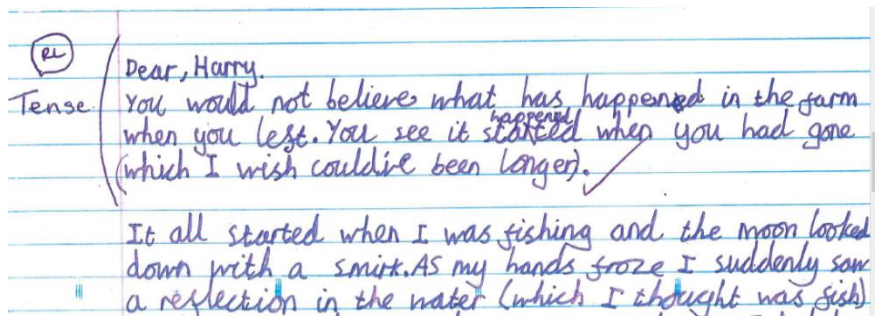 RL
Dear, Harry.
Tense. You would not believe what has happened in the farm
when you left. You see it started happened when you had gone
(which I wish could've been longer).
It all started when I was fishing and the moon looked
down with a smirk. As my hands froze I suddenly saw
a reflection in the water (which I thought was fish)